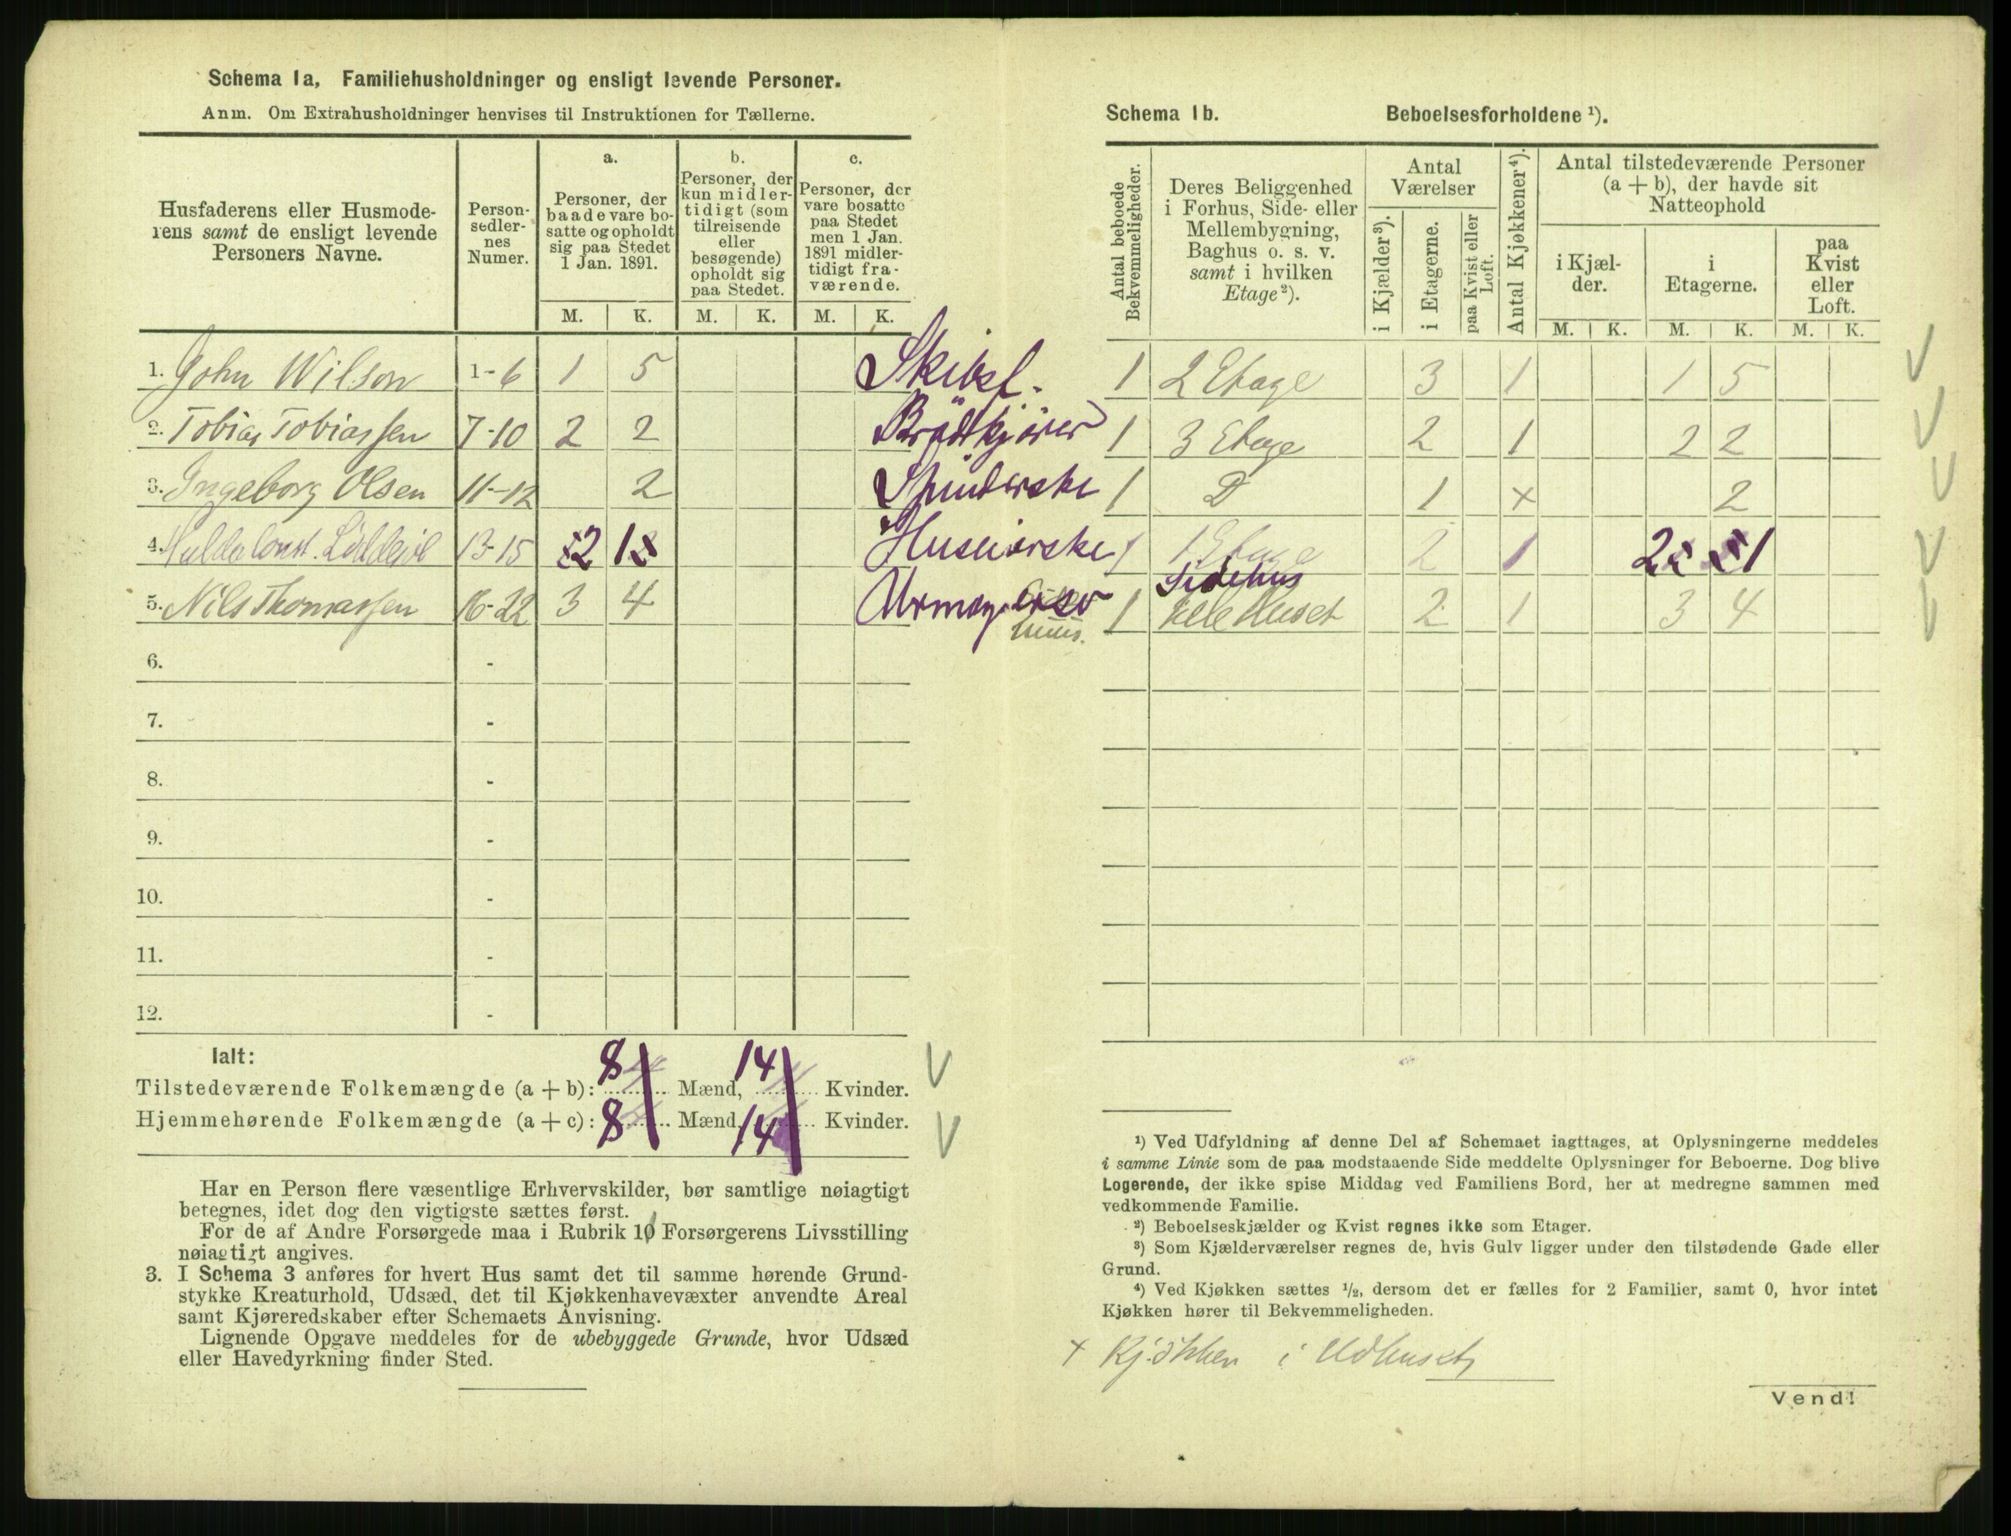 Schema 1a, Familiehusholdninger og ensligt levende Personer.
Anm. Om Extrahusholdninger henvises til Instruktionen for Tællerne.
Husfaderens eller Husmode-
rens samt de ensligt levende
Personers Navne.
Person-
sedler-
nes
Numer.
a.
Personer, der
baade vare bo-
satte og opholdt
sig paa Stedet
1 Jan. 1891.
M. K.
b.
Personer, der
kun midler-
tidigt (som
tilreisende
eller
besøgende)
opholdt sig
paa Stedet.
M. K.
c.
Personer, der
vare bosatte
paa Stedet
men 1 Jan.
1891 midler-
tidigt fra-
værende.
M. K.
1. John Wilson 1-6 1 5 Skibsf.
2. Tobias Tobiassen 7-10 2 2 Brödkjörer
3. Ingeborg Olsen 11-12 2 Spinderske
4. Hulda Const. 13-15 2 1 Huseierske
5. Nils Thomassen 16-22 3 4 Urmager
6. -
7. -
8. -
9. -
10. -
11. -
12. -
Ialt:
Tilstedeværende Folkemængde (a + b): 8 Mænd, 14 Kvinder.
Hjemmehørende Folkemængde (a + c): 8 Mænd, 14 Kvinder.
Har en Person flere væsentlige Erhvervskilder, bør samtlige nøiagtigt
betegnes, idet dog den vigtigste sættes først.
For de af Andre Forsørgede maa i Rubrik 10 Forsørgerens Livsstilling
nøiagtigt angives.
3. I Schema 3 anføres for hvert Hus samt det til samme hørende Grund-
stykke Kreaturhold, Udsæd, det til Kjøkkenhavevæxter anvendte Areal
samt Kjøreredskaber efter Schemaets Anvisning.
Lignende Opgave meddeles for de ubebyggede Grunde, hvor Udsæd
eller Havedyrkning finder Sted.
Schema 1b. Beboelsesforholdene ¹).
Antal beboede
Bekvemmeligheder.
Deres Beliggenhed
i Forhus, Side- eller
Mellembygning,
Baghus o. s. v.
samt i hvilken
Etage²).
Antal
Værelser
i Kjælder³).
i Etagerne.
paa Kvist eller
Loft.
Antal Kjøkkener⁴).
Antal tilstedeværende Personer
(a + b), der havde sit
Natteophold
i Kjæl-
der.
i
Etagerne.
paa
Kvist
eller
Loft.
M. K. M. K. M. K.
1 2 Etage 3 1 1 5
1 3 Etage 2 1 2 2
1 D 1 × 2
1 1 Etage 2 1 2 1
Sidehus
1 hele Huset 2 1 3 4
¹) Ved Udfyldning af denne Del af Schemaet iagttages, at Oplysningerne meddeles
i samme Linie som de paa modstaaende Side meddelte Oplysninger for Beboerne. Dog blive
Logerende, der ikke spise Middag ved Familiens Bord, her at medregne sammen med
vedkommende Familie.
²) Beboelseskjælder og Kvist regnes ikke som Etager.
³) Som Kjælderværelser regnes de, hvis Gulv ligger under den tilstødende Gade eller
Grund.
⁴) Ved Kjøkken sættes ½, dersom det er fælles for 2 Familier, samt 0, hvor intet
Kjøkken hører til Bekvemmeligheden.
× Kjökken i Udhuset
Vend!